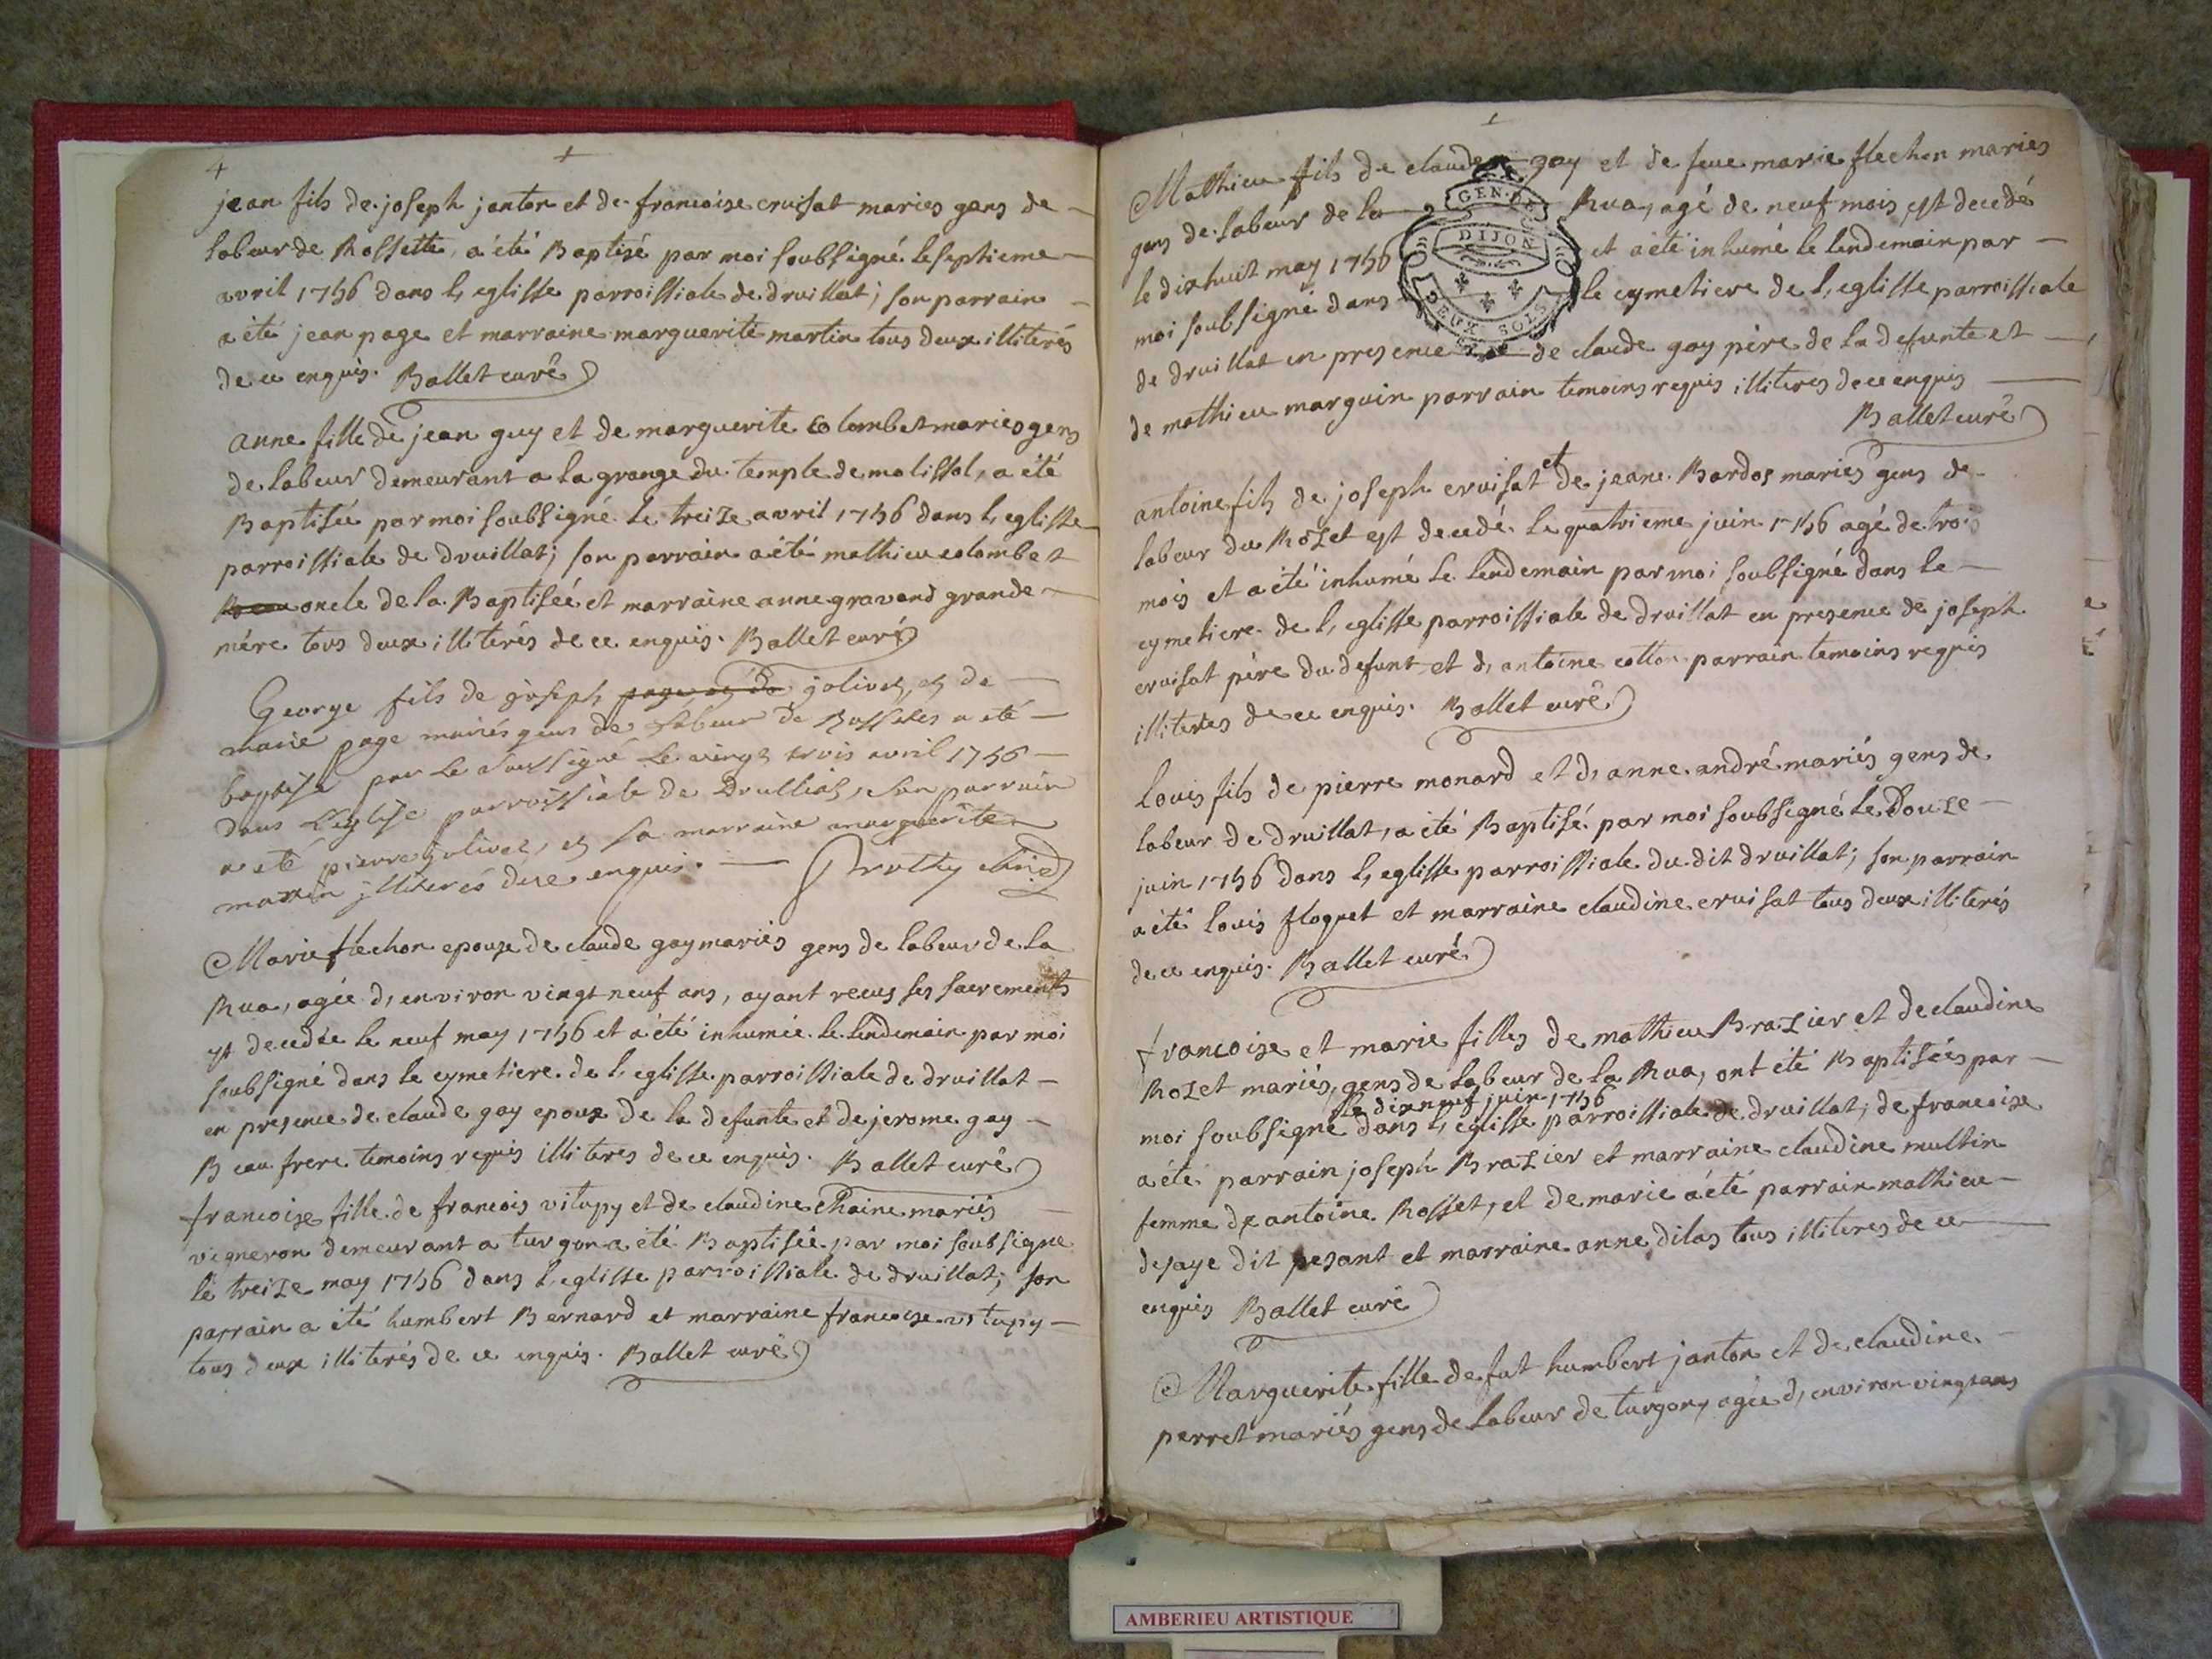 4
jean fils de joseph janton et de francoise cruisat mariés gens de
labeur de Rossette, a été Baptisé par moi soubsigné le septieme
avril 1756 dans l, eglisse parroissiale de druillat; son parrain
a été jean page et marraine marguerite martin tous deux illiterés
de ce enquis. Ballet curé
anne fille de jean guy et de marguerite colombet mariés gens
de labeur demeurant a la grange du temple de molissol, a été
Baptisée par moi soubsigné le treize avril 1756 dans l, eglisse
parroissiale de druillat; son parrain a été mathieu colombet
oncle de la Baptisée et marraine anne gravand grande
mére tous deux illiterés de ce enquis. Ballet curé
George fils de joseph jolivet, et de
marie page mariés gens de labeur de Rossettes a été
baptisé par le soussigné le vingt trois avril 1756
dans l'eglise parroissiale de Druillat, son parrain
a été pierre jolivet, et sa marraine marguerite
martin jlliterés de ce enquis.
Marie flechon epouse de claude gay mariés gens de labeur de la
Rua, agée d, environ vingt neuf ans, ayant recus ses sacrements
est decedée le neuf may 1756 et a été inhumée le lendemain par moi
soubsigné dans le cymetiere de l, eglisse parroissiale de druillat
en presence de claude gay epoux de la defunte et de jerome gay
Beau frere temoins requis illiteres de ce enquis. Ballet curé
francoise fille de francois vitupy et de claudine chaine mariés
vigneron demeurant a turgon a été Baptisée par moi soubsigné
le treize may 1756 dans l, eglisse parroissiale de druillat; son
parrain a été humbert Bernard et marraine francoise vitupy
tous deux illiterés de ce enquis. Ballet curé
Mathieu fils de claude gay et de feue marie flechon mariés
gens de labeur de la Rua, agé de neuf mois est decedé
le dixhuit may 1756 et a été inhumé le lendemain par
moi soubsigné dans le cymetiere de l, eglisse parroissiale
de druillat en presence de claude gay pére de la defunte et
de mathieu marguin parrain temoins requis illiteres de ce enquis
Ballet curé
GEN. DE
DIJON
DEUX SOLS
antoine fils de joseph cruisat et de jeane Bardos mariés gens de
labeur du Rozet est decedé le quatrieme juin 1756 agé de trois
mois et a été inhumé le lendemain par moi soubsigné dans le
cymetiere de l, eglisse parroissiale de druillat en presence de joseph
cruisat pére du defunt et d, antoine cotton parrain temoins requis
illiteres de ce enquis. Ballet curé
Louis fils de pierre monard et d, anne andré mariés gens de
labeur de druillat, a été Baptisé par moi soubsigné le douze
juin 1756 dans l, eglisse parroissiale du dit druillat; son parrain
a été louis floquet et marraine claudine cruisat tous deux illiterés
de ce enquis. Ballet curé
francoise et marie filles de mathieu Brazier et de claudine
Rozet mariés, gens de labeur de la Rua, ont été Baptisées par
le dixneuf juin 1756
moi soubsigné dans l, eglisse parroissiale de druillat; de francoise
a été parrain joseph Brazier et marraine claudine multin
femme de antoine Rosset, et de marie a été parrain mathieu
dejaye dit pesant et marraine anne dilas tous illiteres de ce
enquis Ballet curé
Marguerite fille de fut humbert janton et de claudine
perret mariés gens de labeur de turgon, agée d, environ vingt ans
AMBERIEU ARTISTIQUE